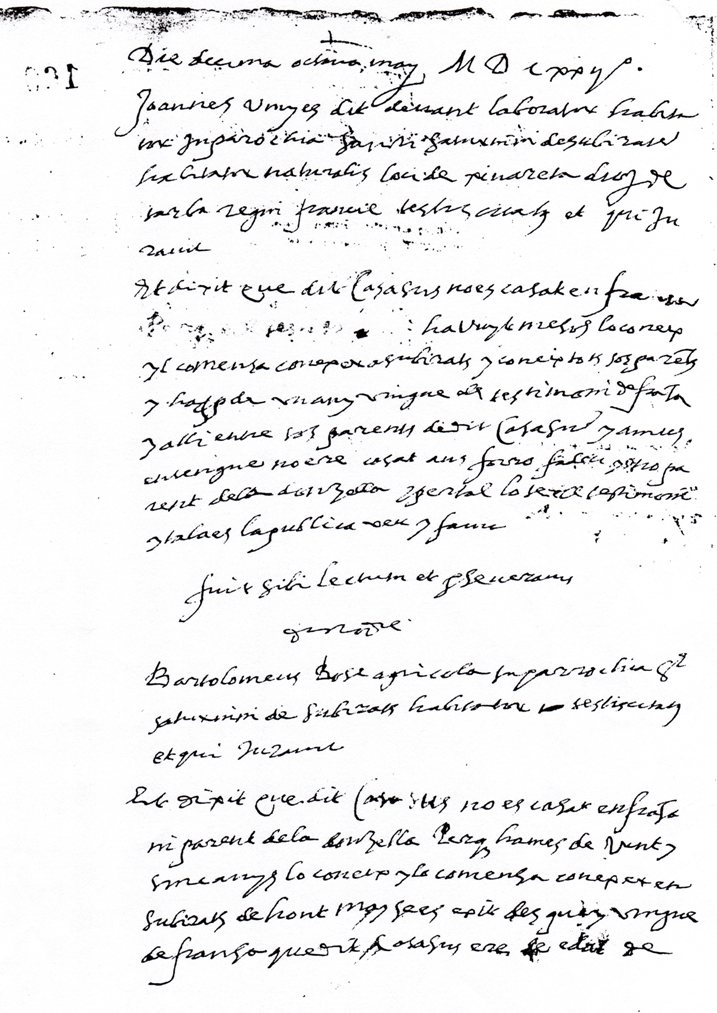 Die decima octava may M D Lxxxj°.
Joannes dit devant laborator habita
tor Inparochia Sancti Saturnini desubirats
habitator naturalis loci de pinareta
tarba regni francie testis citats et qui Ju
ravit
Et dixit que dit Casasus noes casat en franca
ha vuyt mesos loconex
yl comensa conexer asubirats y coneix tots sos parets
y ha de un any vingue de testimoni de frāsa
y alli entre sos parents dedit Casasus y amics
entengue no ere casat ans forro fadri y no pa
rent dela donzella y per tal lo te ell testimoni
y tal aes la publica veu y fama
fuit sibi lectum et perseveravit
Bartolomeus Bosc agricola Inparrochia St
saturnini de Subirats habitator testis citats
et qui Juravit
Et dixit que dit Casasus no es casat enfrāsa
ni parent dela donzella Perq ha mes de vint y
sinc anys lo coneix y lo comensa conexer en
Subirats de hont may sees exit des quey vingue
de fransa quedit Casasus ere de edat de